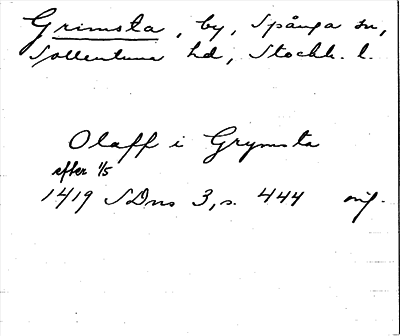 Grimsta, by, Spånga sn,
Sollentuna hd, Stockh. l.
Olaff i Grymsta
efter 1/5
1419 SDns 3, s. 444 orig.